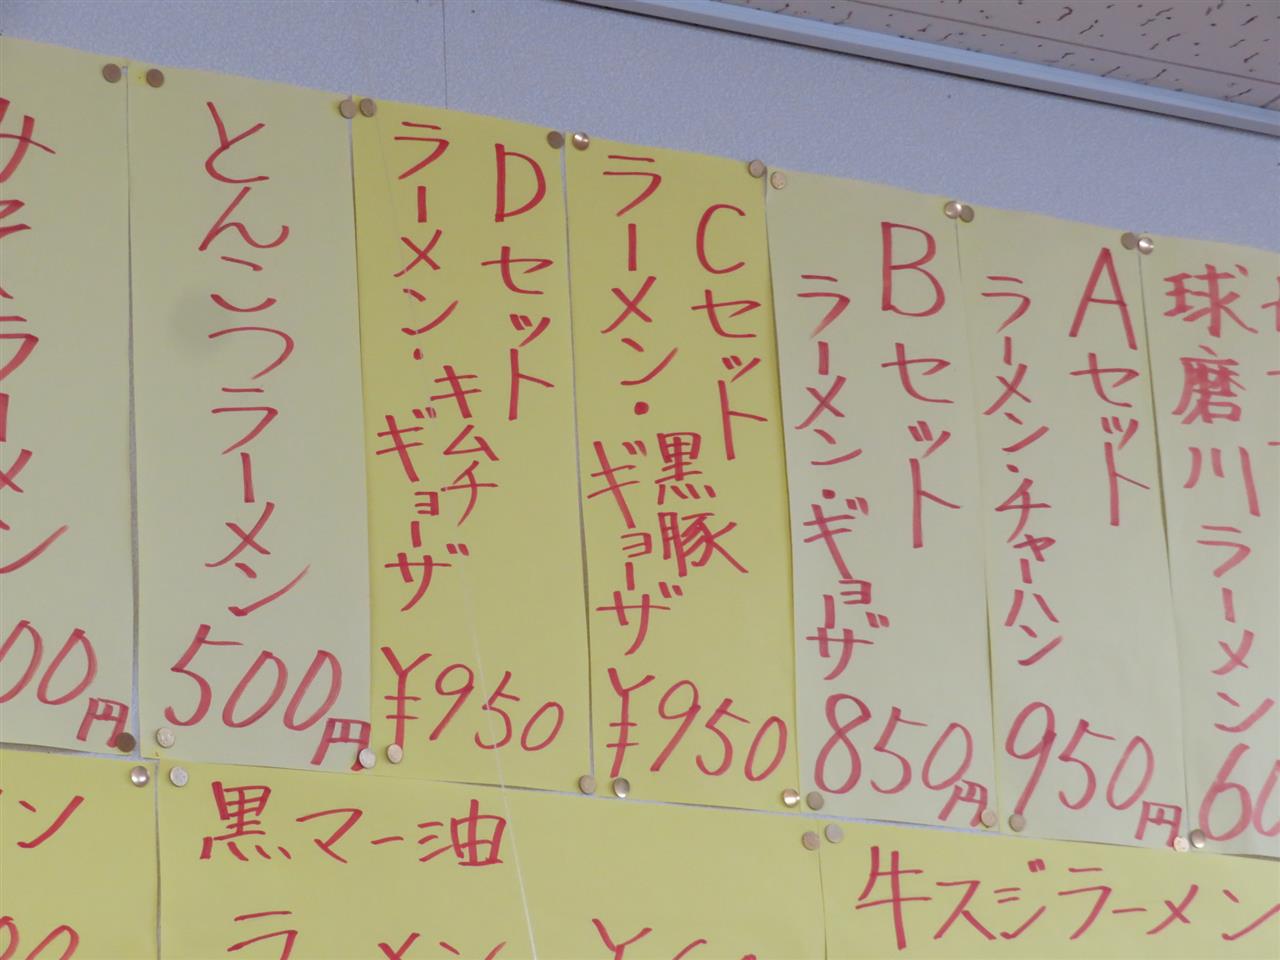 球磨川ラーメン
Aセット
ラーメン・チャーハン
950円
Bセット
ラーメン・ギョーザ
850円
Cセット
ラーメン・黒豚
ギョーザ
¥950
Dセット
ラーメン・キムチ
ギョーザ
¥950
とんこつラーメン
500円
00円
牛スジラーメン
黒マー油
ラーメン